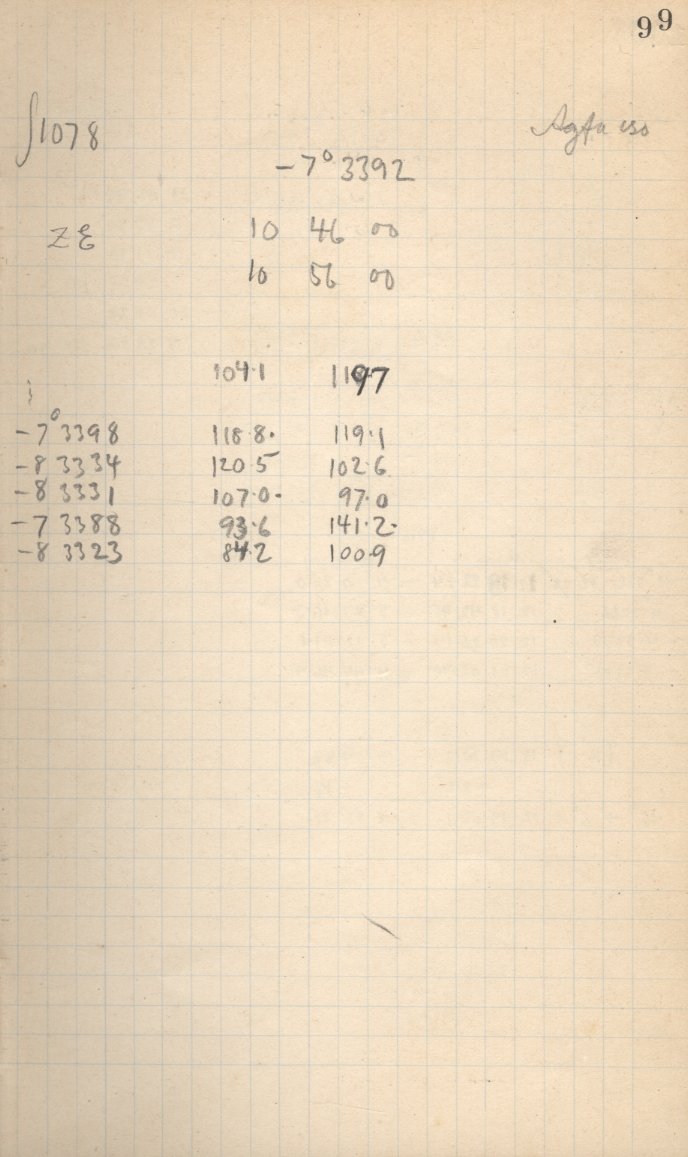 99
∫1078
Agfa iso
-7° 3392
ZE 10 46 00
10 56 00
104.1
-7° 3398 118.8. 119.1
-8 3334 120.5 102.6
-8 3331 107.0. 97.0
-7 3388 93.6 141.2.
-8 3323 84.2 100.9